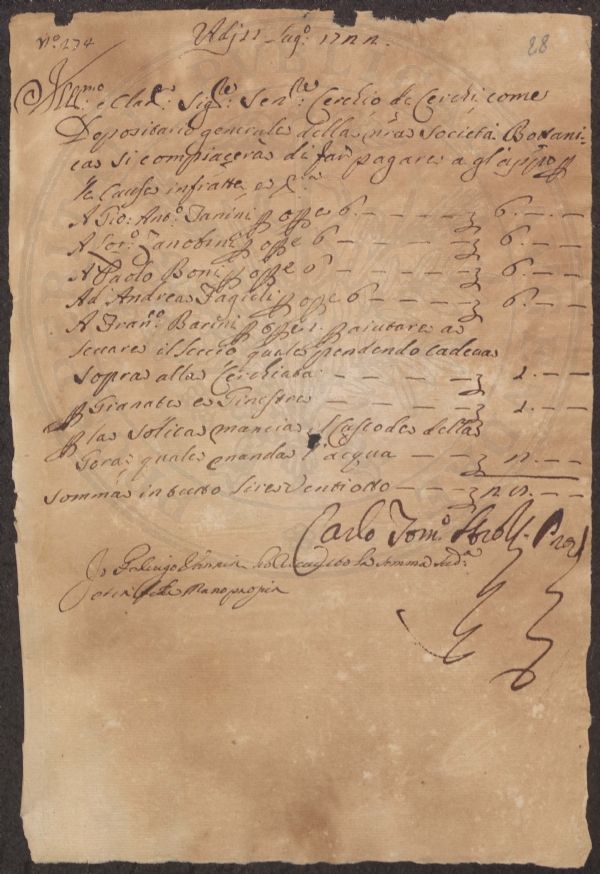 N.º 234
Adj 11 Lug.º 1722
28
Ill.mo e Clar. Sig.re Sen.re Cerchio de Cerchi, come
Depositario generale della nra Società Bottani-
ca si compiacerà di far pagare a gl'app.ro p
le cause infratte, e
A Gio: Ant.º Fanini p ope 6. — 6. —
A Lor.º Zanobini p ope 6 — 6. —
A Paolo Boni p ope 6 — 6. —
Ad Andrea Fagioli p ope 6 — 6. —
A Fran.co Barini p ope 1. p aiutare a
segare il quale pendendo cadeva
sopra alla Cerchiata — 1. —
p Granate e Ginestre — 1. —
p la solita mancia al Custode della
Gora quale manda l'acqua — 2. —
Somma in tutto lire Ventiotto — 28. —
Carlo Tom.º Strozzi Pres.
Io ho ricevuto la somma sud.a
mano propria